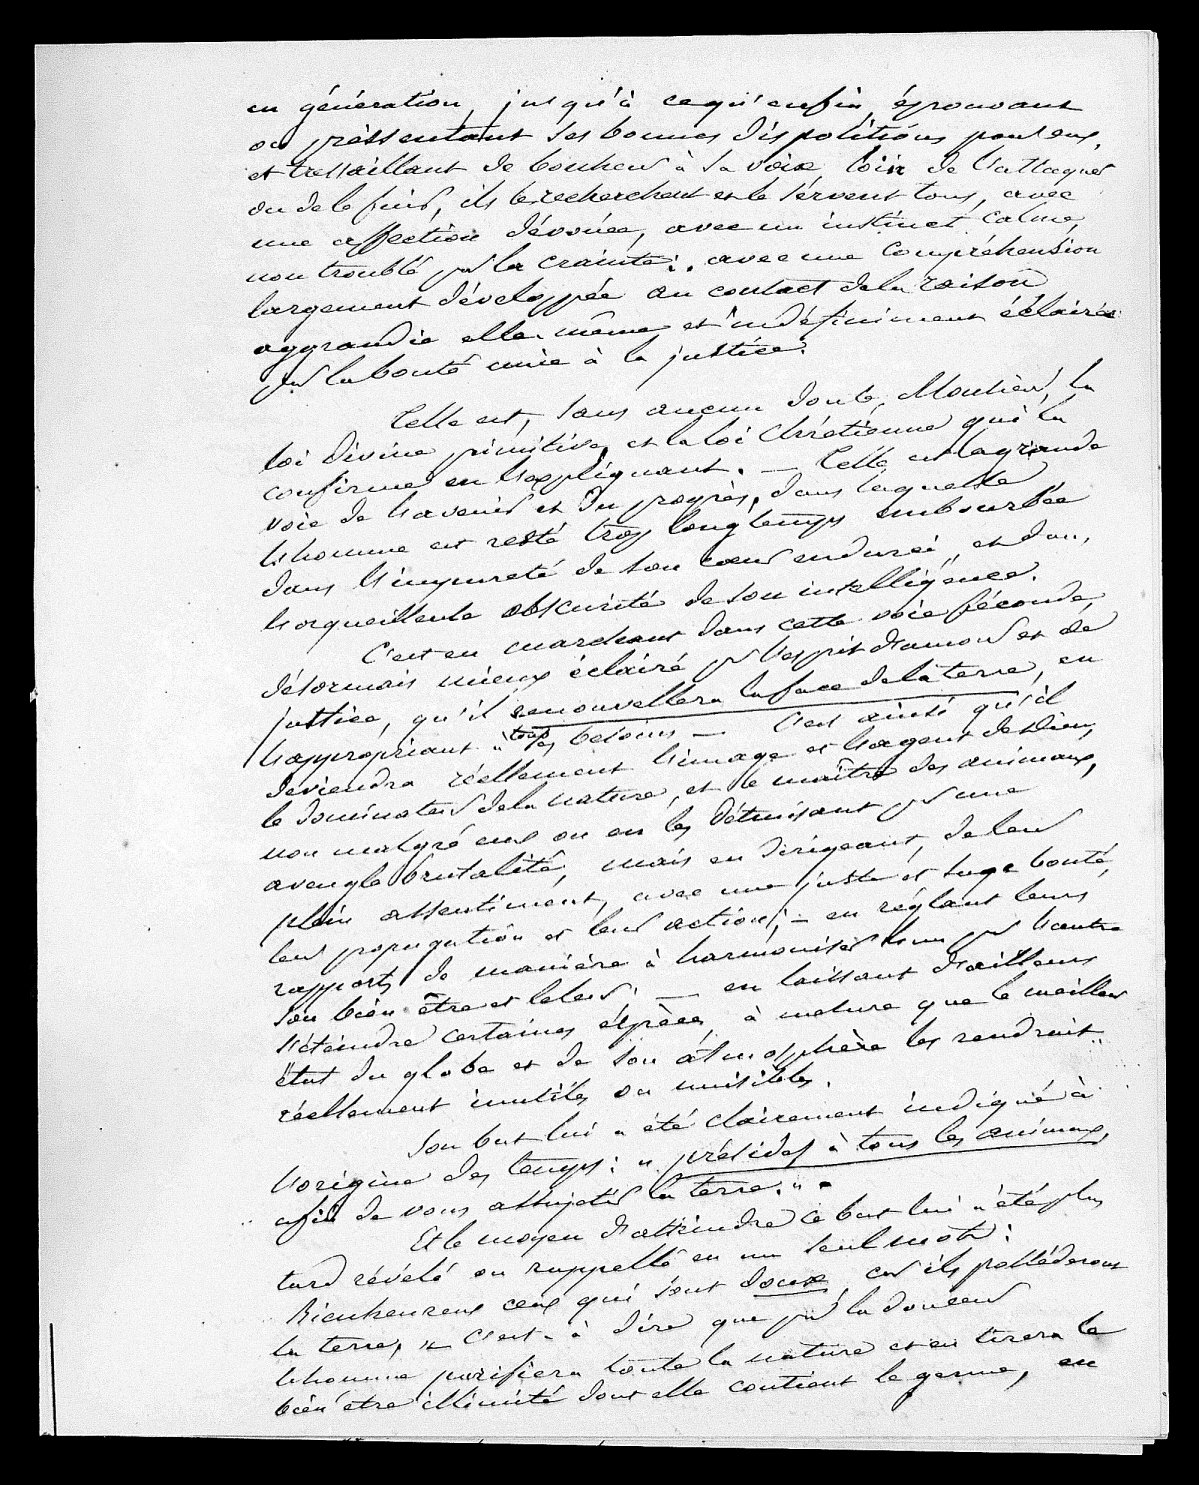 en génération, jusqu'à ce qu'enfin, éprouvant
ou pressentant ses bonnes dispositions pour eux,
et tressaillant de bonheur à sa voix, loin de l'attaquer
ou de le fuir, ils le recherchent et le servent tous, avec
une affection dévouée, avec un instinct calme,
non troublé par la crainte; avec une compréhension
largement développée au contact de la raison
aggrandie elle-même et indéfiniment éclairée
par la bonté unie à la justice.
Telle est, sans aucun doute, Monsieur, la
loi divine primitive, et la loi Chrétienne qui la
confirme en l'expliquant. — Telle est la grande
voie de l'avenir et du progrès, dans laquelle
l'homme est resté trop longtemps embourbée
dans l'impureté de son cœur endurci, et dans
l'orgueilleuse obscurité de son intelligence.
C'est en marchant dans cette voie féconde,
désormais mieux éclairé par l'esprit d'amour et de
justice, qu'il renouvellera la face de la terre, en
l'appropriant à tous ses besoins — C'est ainsi qu'il
deviendra réellement l'image et l'agent de Dieu,
le dominateur de la nature, et le maître des animaux,
non malgré eux ou en les détruisant par une
aveugle brutalité, mais en dirigeant, de leur
plein assentiment, avec une juste et sage bonté,
leur propagation et leur action; — en réglant leurs
rapports de manière à harmoniser l'un par l'autre
son bien être et le leur; — en laissant d'ailleurs
s'éteindre certaines espèces, à mesure que le meilleur
état du globe et de son atmosphère les rendrait
réellement inutiles ou nuisibles.
Son but lui a été clairement indiqué à
l'origine des temps: « présider à tous les animaux,
afin de vous assujetir la terre. »
Et le moyen d'atteindre ce but lui a été plus
tard révélé ou rappellé en un seul mot:
Bienheureux ceux qui sont doux, car ils posséderont
la terre, » C'est-à dire que par la douceur
l'homme purifiera toute la nature et en tirera le
bien être illimité dont elle contient le germe, en